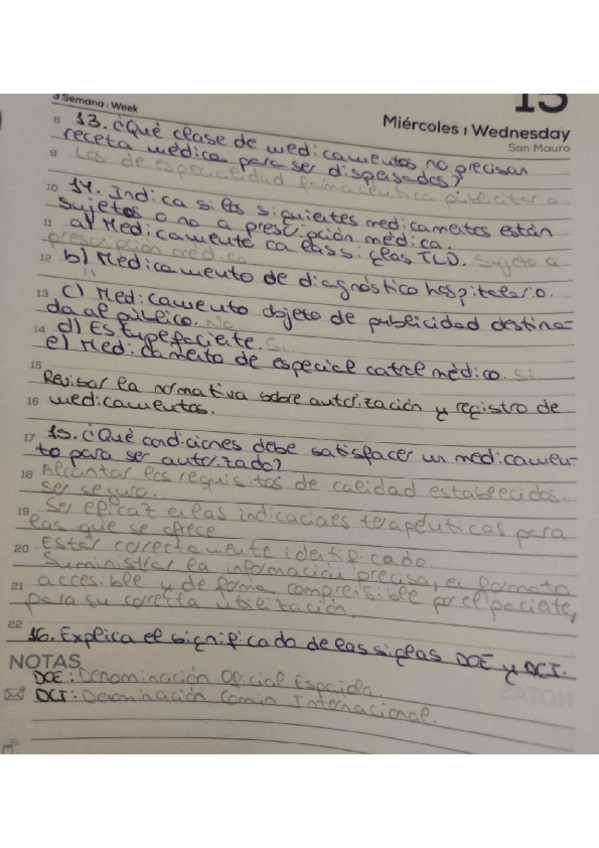 3 Semana : Week
13
Miércoles | Wednesday
San Mauro
8 13. ¿Qué clase de medicamentos no precisan
receta médica para ser dispensados?
9 Los de especialidad farmacéutica publicitaria
10 14. Indica si los siguientes medicamentos están
sujetos o no a prescripción médica.
11 a) Medicamento ca las siglas TLD. Sujeto a
prescripción médica
12 b) Medicamento de diagnóstico hospitalario.
"
13 c) Medicamento objeto de publicidad destina-
da al público. No
14 d) Estupefaciente. Si
e) Medicamento de especial control médico. Si
15
Revisar la normativa sobre autorización y registro de
16 medicamentos.
17 15. ¿Qué condiciones debe satisfacer un medicamen-
to para ser autorizado?
18 Alcanzar los requisitos de calidad establecidos.
Ser seguro.
19 Ser eficaz en las indicaciones terapéuticas para
las que se ofrece
20 Estar correctamente identificado.
Suministrar la información precisa, en formato
21 accesible y de forma comprensible por el paciente,
para su correcta utilización.
22
16. Explica el significado de las siglas DOE y DCI.
NOTAS
DOE: Denominación Oficial Española.
DCI: Denominación Común Internacional.